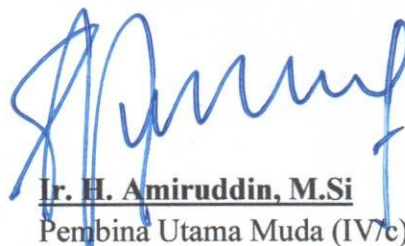 Ir. H. Amiruddin, M.Si
Pembina Utama Muda (IV/c)